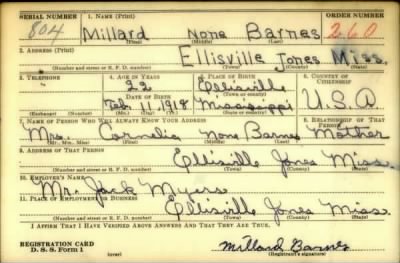 SERIAL NUMBER 1. NAME (Print) ORDER NUMBER
804 Millard None Barnes 260
(First) (Middle) (Last)
2. ADDRESS (Print)
Ellisville Jones Miss.
(Number and street or R. F. D. number) (Town) (County) (State)
3. TELEPHONE 4. AGE IN YEARS 5. PLACE OF BIRTH 6. COUNTRY OF CITIZENSHIP
22 Ellisville
DATE OF BIRTH (Town or county)
Feb. 11, 1918 Mississippi U.S.A.
(Exchange) (Number) (Mo.) (Day) (Yr.) (State or country)
7. NAME OF PERSON WHO WILL ALWAYS KNOW YOUR ADDRESS 8. RELATIONSHIP OF THAT PERSON
Mrs. Cornelia None Barnes Mother
(Mr., Mrs., Miss) (First) (Middle) (Last)
9. ADDRESS OF THAT PERSON
Ellisville Jones Miss.
(Number and street or R. F. D. number) (Town) (County) (State)
10. EMPLOYER'S NAME
Mr. Jack Myers
11. PLACE OF EMPLOYMENT OR BUSINESS
Ellisville Jones Miss.
(Number and street or R. F. D. number) (Town) (County) (State)
I AFFIRM THAT I HAVE VERIFIED ABOVE ANSWERS AND THAT THEY ARE TRUE.
REGISTRATION CARD Millard Barnes
D. S. S. Form 1 (over) (Registrant's signature)